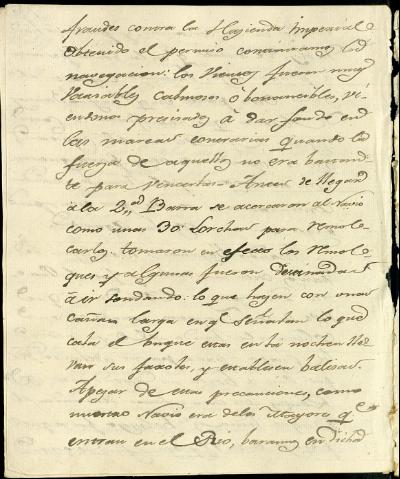 fraudes contra la Hazienda Imperial.
Obtenido el permiso continuamos la
navegacion: los Vientos fueron muy
Variables Calmosos ó bonancibles, vi-
endonos precisados á dar fondo en
las mareas contrarias quando la
fuerza de aquellos no era bastan-
te para vencerlas. Antes de llegar
á la 2.ª Barra se acercaron al Navio
como unas 30 Lorchas para remol-
carlo, tomaron en efecto los Remol-
ques y algunas fueron destinadas
á ir sondando: lo que hazen con una
Caña larga en q.e señalan lo que
cala el Buque estas en la noche lle-
van sus faroles, y establecen balisas.
Apezar de estas precauciones, como
nuestro Navio era delos Mayores q.e
entran en el Rio, baramos en dicha